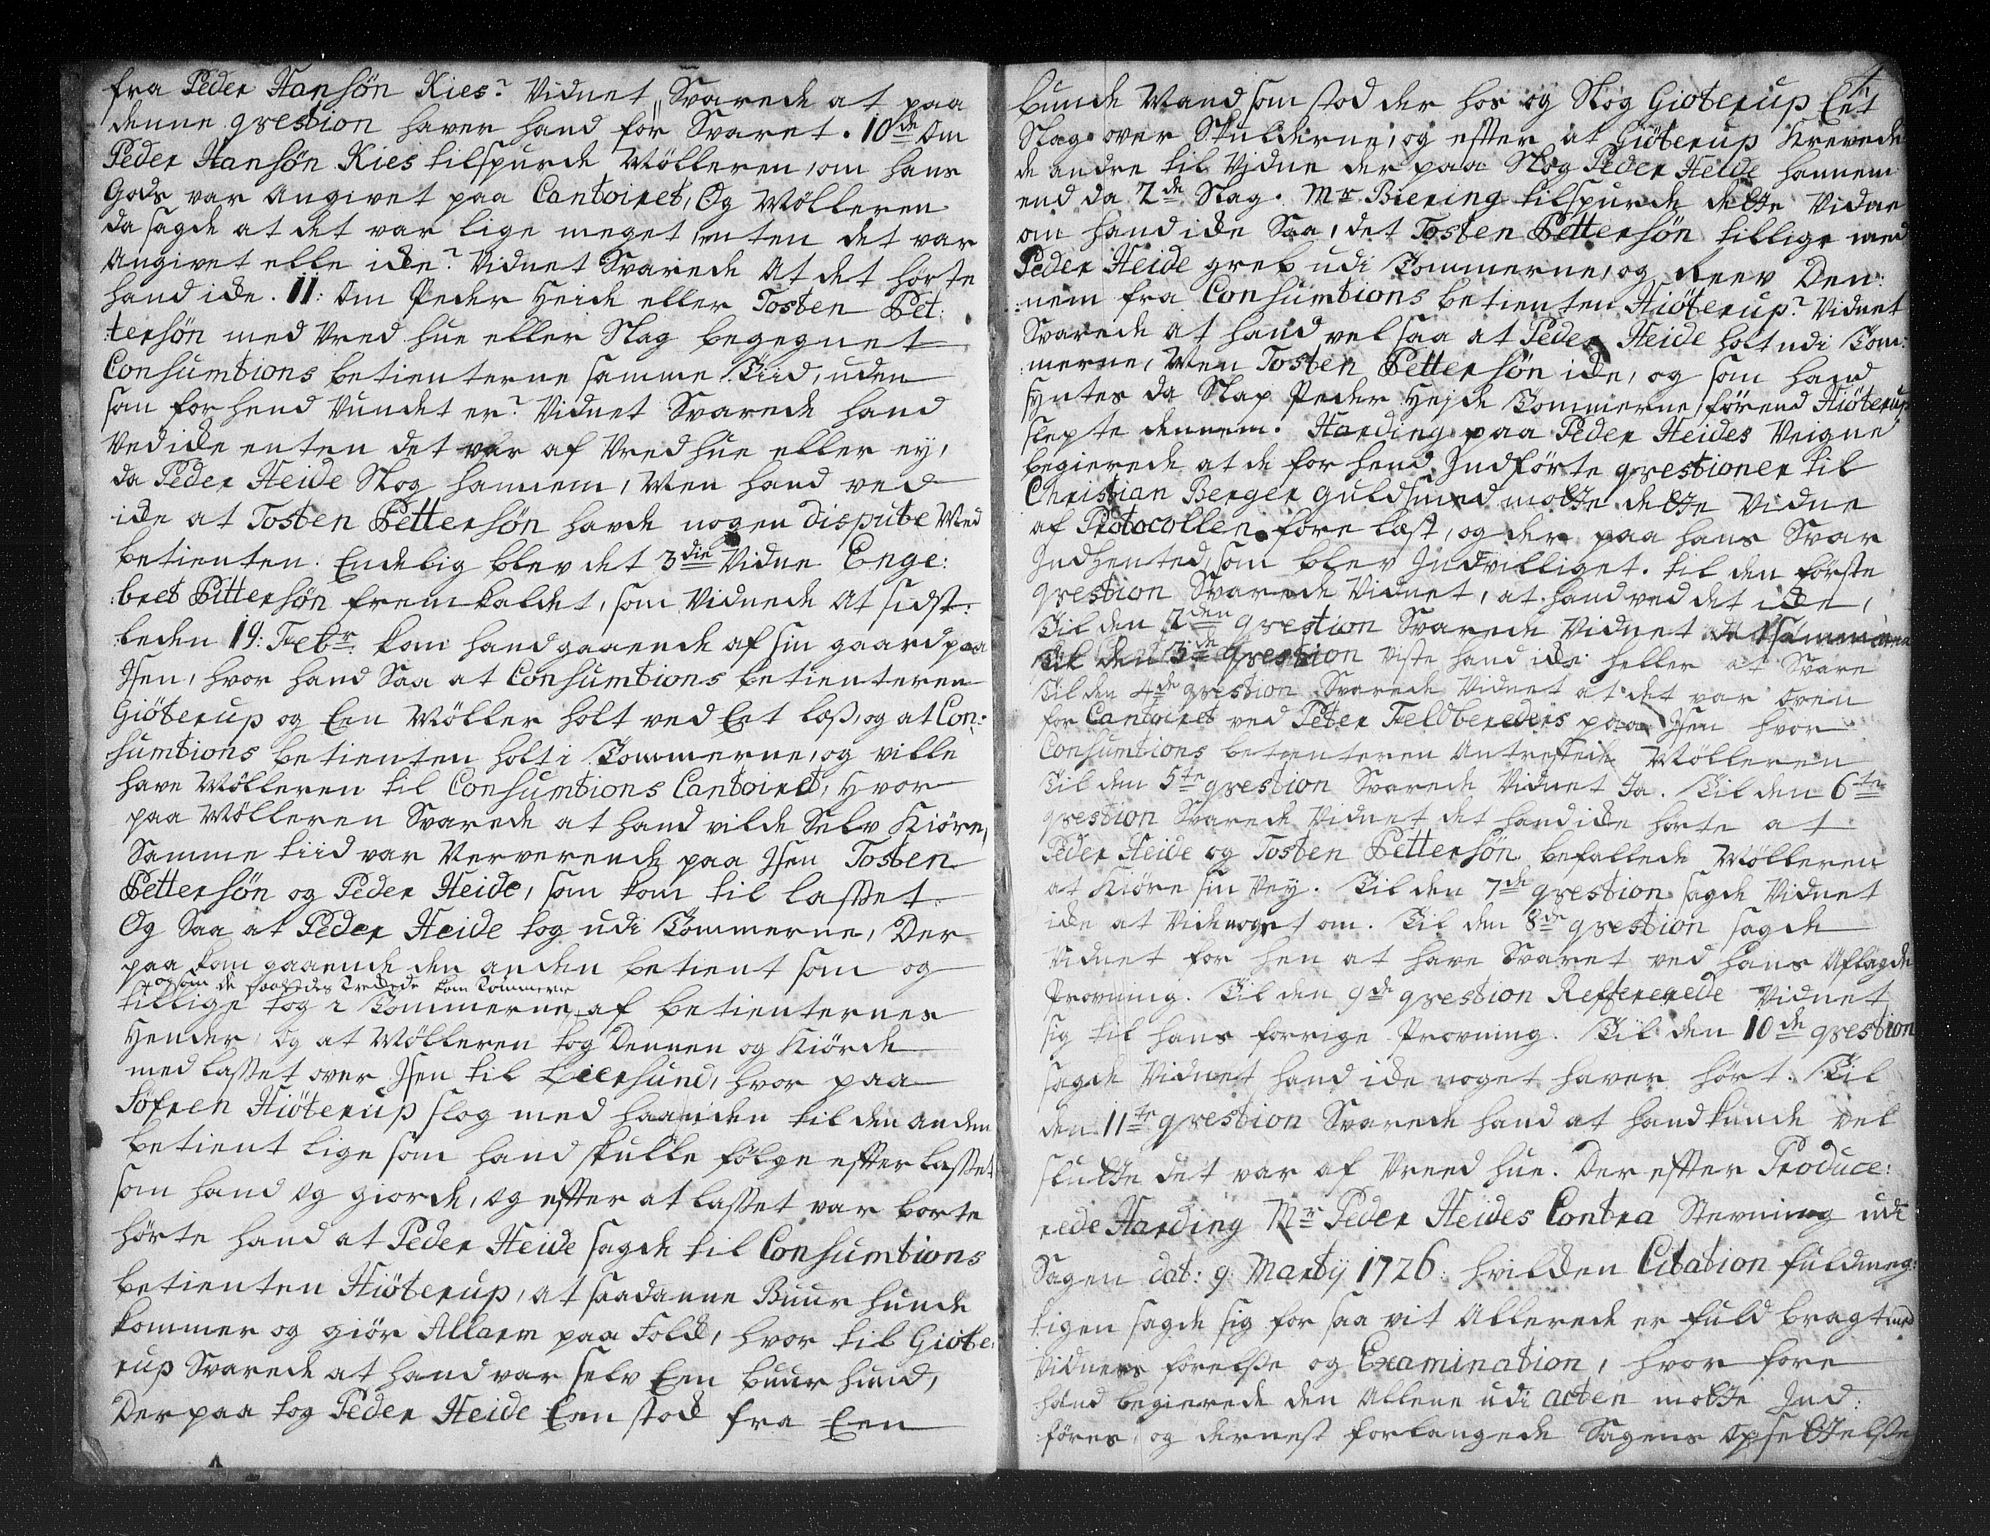 fra Peder Hansøn Kies? Vidnet Svarede at paa
denne qvestion haver hand før Svaret. 10de Om
Peder Hansøn Kies tilspurde Mølleren, om hans
Gods var Angivet paa Cantoiret, Og Mølleren
da sagde at det var lige meget, enten det var
Angivet elle icke? Vidnet Svarede At det hørte
hand icke. 11: Om Peder Heide eller Tosten Pet:
tersøn med Vred hue eller Slag begegnet
Consumtions betienterne samme Tiid, uden
som forhend Vundet er? Vidnet Svarede hand
Ved icke enten det var af Vred hue eller ey,
da Peder Heide Slog hannem, Men hand ved
icke at Tosten Pettersøn havde nogen dispute Med
betienten. Endelig blev det 3die Vidne Enge:
bret Pittersøn fremkaldet, som Vidnede At sidst:
leden 19: Febr. kom hand gaaende af sin gaard paa
Isen, hvor hand Saa at Consumtions betienteren
Giöterup og Een Møller holt ved Eet læs, og at Con:
sumtions betienten holt i Tommerne, og ville
have Mølleren til Consumtions Cantoiret, Hvor
paa Mølleren Svarede at hand vilde Selv Kiøre,
Samme tiid var Ververende paa Isen Tosten
Pettersøn og Peder Heide, som kom til lasset
Og Saa at Peder Heide tog udi Tommerne, Der
paa kom gaaende den anden betient som og
og som de saaledes trechede kom Tommerne
tillige tog i Tommerne af betienternes
Hender, Og at Mølleren tog Dennem og Kiörde
med lasset over Isen til Liersund, hvor paa
Söfren Hiöterup slog med haanden til den anden
betient lige som hand skulle følge efter lasset
som hand og giorde, og efter at lasset var borte
hørte hand at Peder Heide sagde til Consumtions
betienten Hiöterup, at saadanne Buur hunde
kommer og giør Allarm paa Folck, hvor til Giöte:
rup Svarede at hand var selv Een buur hund,
Der paa tog Peder Heide Een stock fra Een
bunde Mand som stod der hos og Slog Giöterup Eet
Slag over Skulderne, og efter at Giöterup Krevede
de andre til Vidne der paa Slog Peder Heide hannem
end da 2de Slag. Mr Biering tilspurde dette Vidne
om hand icke Saa, det Tosten Pettersøn tillige med
Peder Heide greb udi Tommerne, og Reev Den:
nem fra Consumtions betienten Hiöterup? Vidnet
Svarede at hand vel saa at Peder Heide holt udi Tom:
merne, Men Tosten Pettersøn icke, og som hand
syntes da Slap Peder Heide Tommerne, førend Hiöterup
slepte dennem. Harding paa Peder Heides Veigne
begierede at de forhend Indførte qvestioner til
Christian Berger guldsmed motte dette Vidne
af Protocollen forelæst, og der paa hans Svar
Indhented, som blev Indvilliget. til den første
qvestion Svarede Vidnet, at hand ved det icke,
Til den 2den qvestion Svarede Vidnet det samme
Til den 3de qvestion viste hand icke heller at Svare
Til den 4de qvestion Svarede Vidnet at det var oven
for Cantoiret ved Peter Feldbereders paa Isen hvor
Consumtions betienteren Antreffede Mølleren
Til den 5te qvestion Svarede Vidnet Ja. Til den 6te
qvestion Svarede Vidnet det hand icke hørte at
Peder Heide og Tosten Pettersøn befallede Mølleren
at Kiøre sin Vey. Til den 7de qvestion sagde Vidnet
icke at Vide noget om. Til den 8de qvestion sagde
Vidnet for hen at have Svaret ved hans Aflagde
Provning. Til den 9de qvestion Reffererede Vidnet
sig til hans forrige Provning. Til den 10de qvestion
sagde Vidnet hand icke noget haver hørt. Til
den 11te qvestion Svarede hand at hand kunde vel
slutte det var af Vreed hue. Der efter Produce:
rede Harding Mr Peder Heides Contra Stevning udi
Sagen dat: 9 Martij 1726: hvilcken Citation fuldmeg:
tigen sagde sig for saa vit Allerede er fuld bragt med
Vidners førelse og Examination, hvor fore
hand begierede den Allene udi acten motte Ind:
føres, og dernest forlangede Sagens Opsettelse